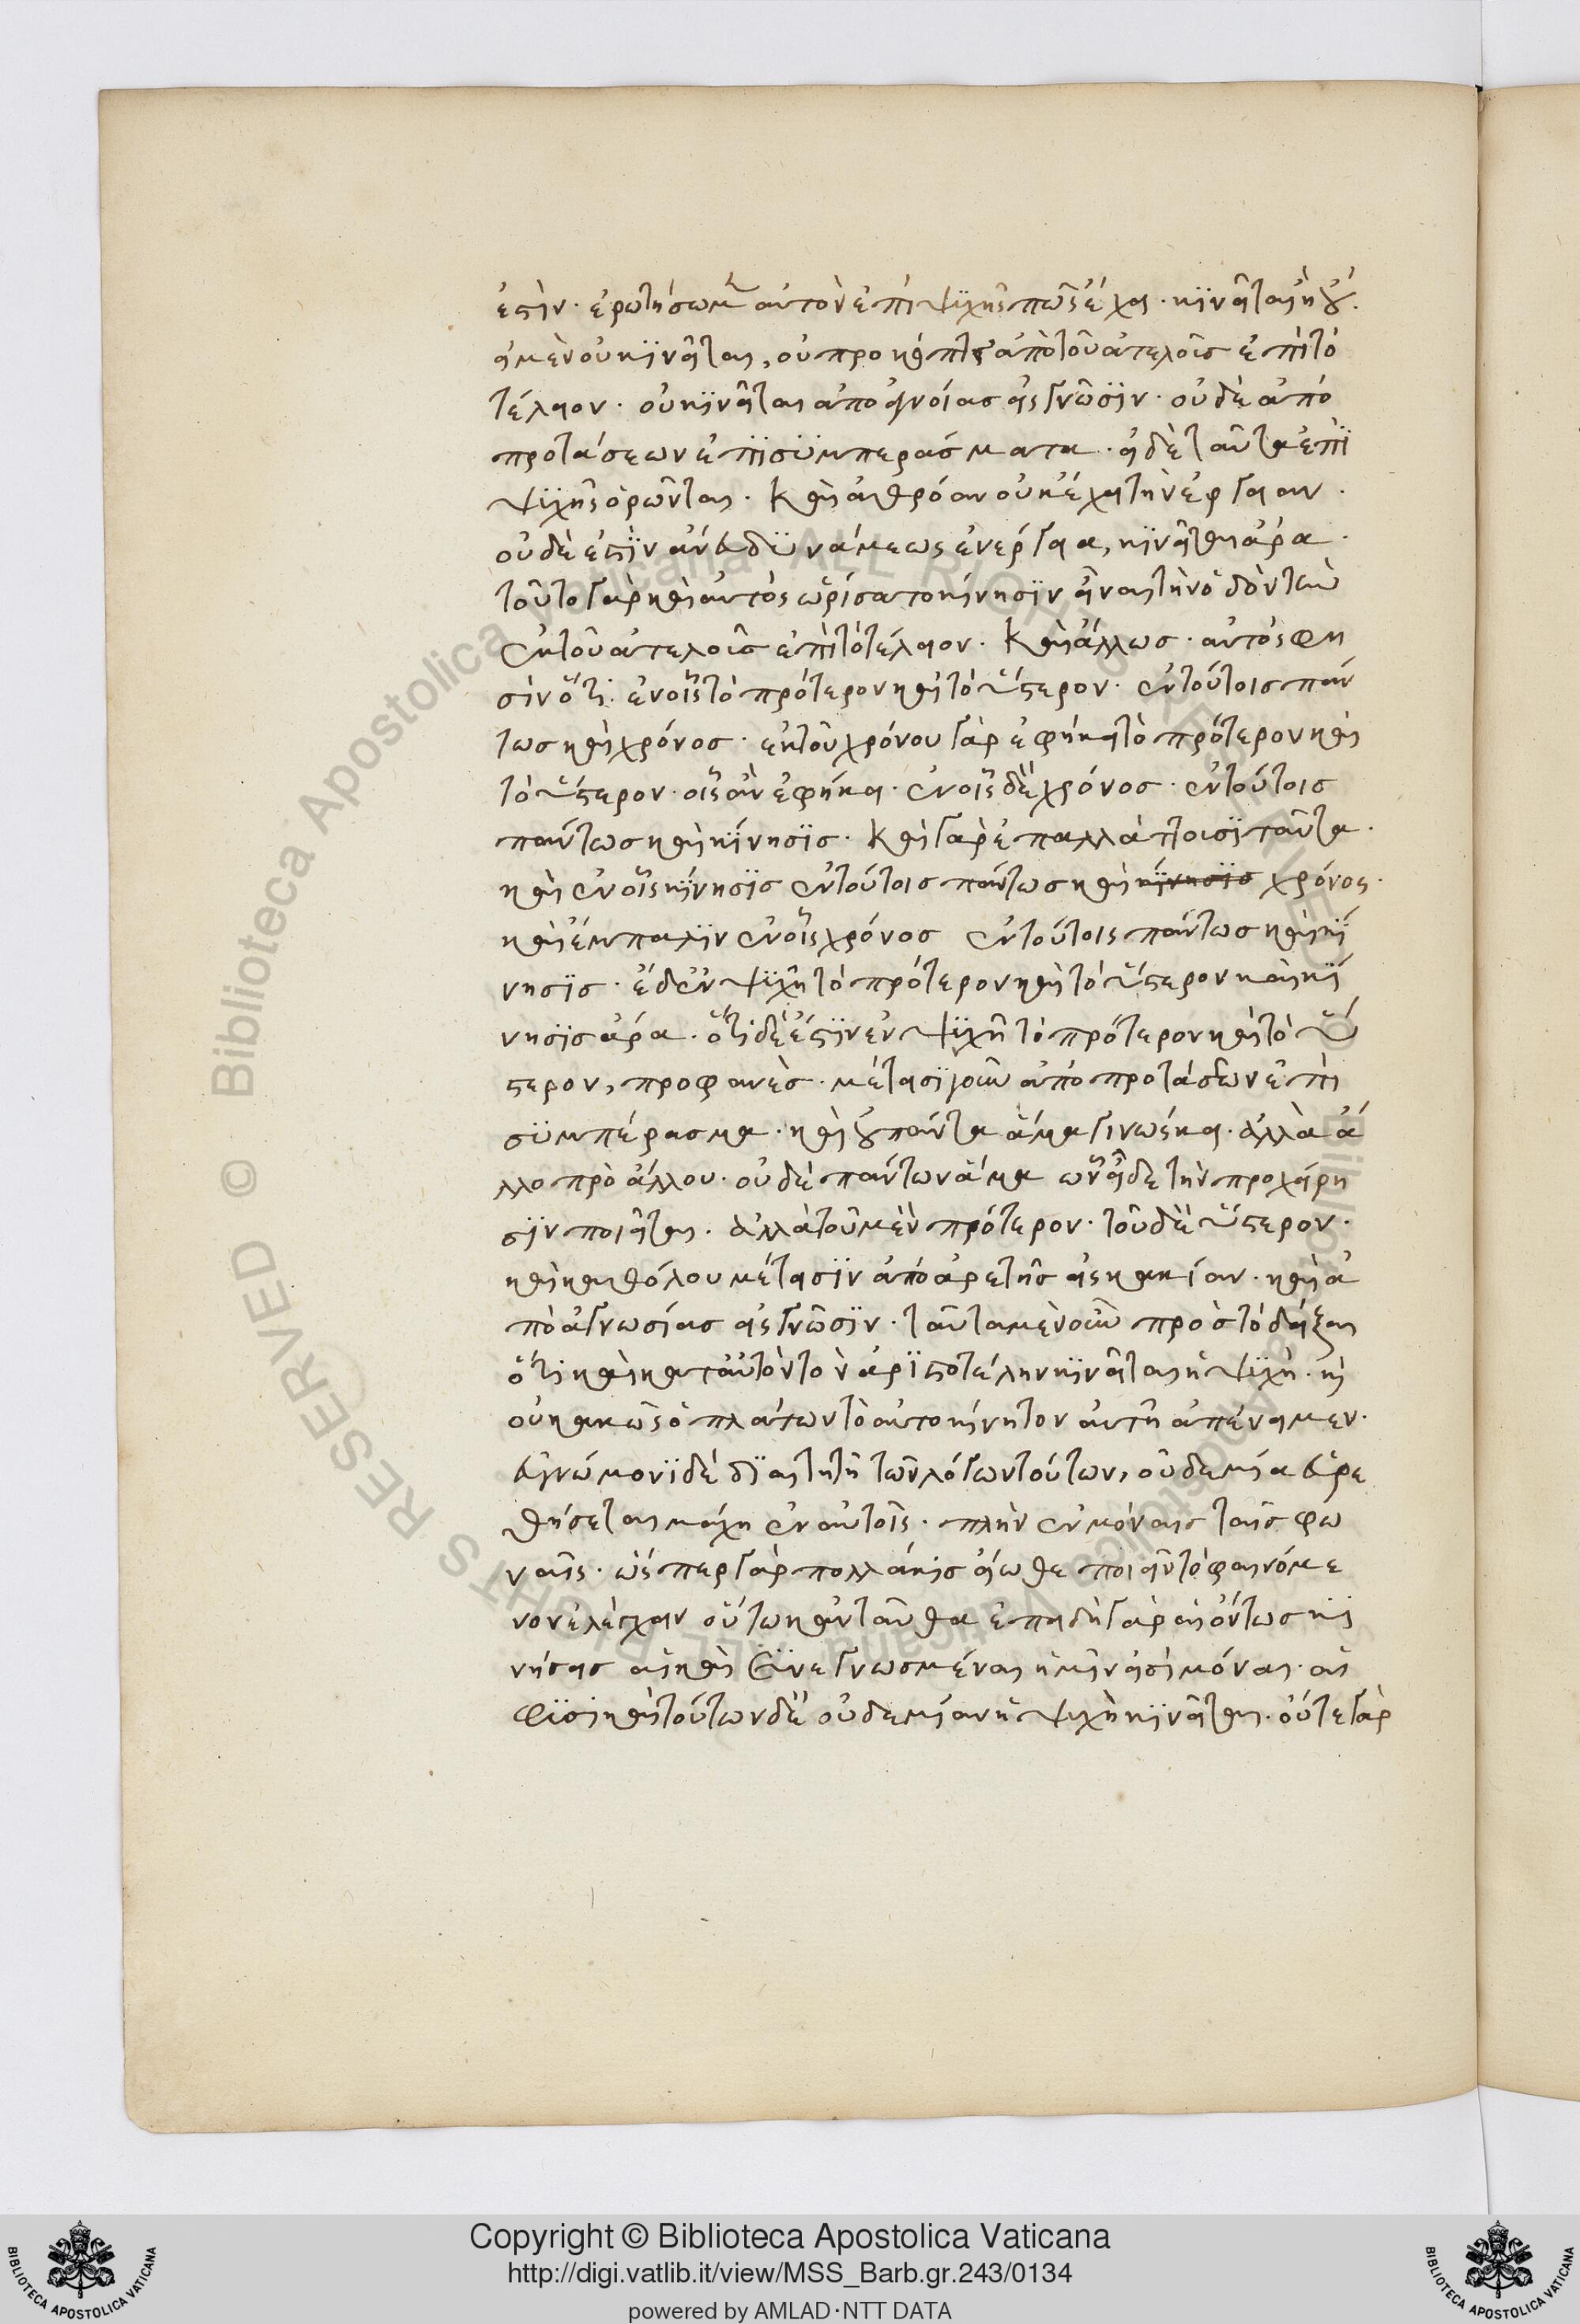 ἐστὶν· ἐρωτήσωμεν αὐτὸν ἐπὶ ψυχῆς πῶς ἔχει· κινεῖται ἢ οὔ·
εἰ μὲν οὐ κινεῖται, οὐ προκόπτει ἀπὸ τοῦ ἀτελοῦς ἐπὶ τὸ
τέλειον· οὐ κινεῖται ἀπὸ ἀγνοίας εἰς γνῶσιν· οὐδὲ ἀπὸ
προτάσεων ἐπὶ συμπεράσματα· εἰ δὲ ταῦτα ἐπὶ
ψυχῆς ὁρῶνται· καὶ ἀθρόαν οὐκ ἔχει τὴν ἐνέργειαν·
οὐδὲ ἐστὶν ἄνευ δυνάμεως ἐνέργεια, κινεῖται ἄρα·
τοῦτο γὰρ καὶ αὐτὸς ὡρίσατο κίνησιν εἶναι τὴν ὁδὸν τὴν
ἐκ τοῦ ἀτελοῦς ἐπὶ τὸ τέλειον· καὶ ἄλλως· αὐτός φη
σὶν ὅτι· ἐν οἷς τὸ πρότερον καὶ τὸ ὕστερον· ἐν τούτοις πάν
τως καὶ χρόνος· ἐκ τοῦ χρόνου γὰρ ἐφήκει τὸ πρότερον καὶ
τὸ ὕστερον· οἷς ἂν ἐφήκει· ἐν οἷς δὲ χρόνος· ἐν τούτοις
πάντως καὶ κίνησις· καὶ γὰρ ἐπαλλάττουσι ταῦτα·
καὶ ἐν οἷς κίνησις ἐν τούτοις πάντως καὶ κίνησις χρόνος·
καὶ ἔμπαλιν ἐν οἷς χρόνος ἐν τούτοις πάντως καὶ κί
νησις· ἔδ ἐν ψυχῇ τὸ πρότερον καὶ τὸ ὕστερον καὶ κί
νησις ἄρα· ὅτι δὲ ἐστὶν ἐν ψυχῇ τὸ πρότερον καὶ τὸ ὕ
στερον, προφανὲς· μέτεισι γοῦν ἀπὸ προτάσεων ἐπὶ
συμπέρασμα· καὶ οὐ πάντα ἅμα γινώσκει· ἀλλὰ ἄ
λλο πρὸ ἄλλου· οὐδὲ πάντων ἅμα ὧν εἶδε τὴν προχείρη
σιν ποιεῖται· ἀλλὰ τοῦ μὲν πρότερον· τοῦ δὲ ὕστερον·
καὶ καθόλου μέτεισιν ἀπὸ ἀρετῆς εἰς κακίαν· καὶ ἀ
πὸ ἀγνωσίας εἰς γνῶσιν· ταῦτα μὲν οὖν πρὸς τὸ δεῖξαι
ὅτι καὶ κατ αὐτὸν τὸν ἀριστοτέλην κινεῖται ἡ ψυχὴ· κὶ
οὐ κακῶς ὁ πλάτων τὸ αὐτοκίνητον αὐτῇ ἀπένειμεν·
εὐγνώμονι δὲ διαιτητῇ τῶν λόγων τούτων, οὐδεμία εὑρε
θήσεται μάχη ἐν αὐτοῖς· πλὴν ἐν μόναις ταῖς φω
ναῖς· ὥσπερ γὰρ πολλάκις εἴωθε ποιεῖν τὸ φαινόμε
νον ἐλέγχειν οὕτω κἀνταῦθα ἐπειδὴ γὰρ αἱ ὄντως κι
νήσεις αἱ καὶ συνεγνωσμέναι ἡμῖν εἰσὶ μόναι· αἱ
φυσικαὶ τούτων δὲ οὐδεμίαν ἡ ψυχὴ κινεῖται· οὔτε γὰρ
Copyright © Biblioteca Apostolica Vaticana
http://digi.vatlib.it/view/MSS_Barb.gr.243/0134
powered by AMLAD·NTT DATA